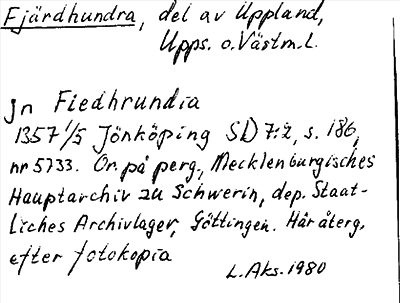 Fjärdhundra, del av Uppland,
Upps. o. Västm. L.
Jn Fiedhrundia
1357 1/5 Jönköping SD 7:2, s. 186,
nr 5733. Or. på perg., Mecklenburgisches
Hauptarchiv zu Schwerin, dep. Staat-
liches Archivlager, Göttingen. Här återg.
efter fotokopia
L. Aks. 1980